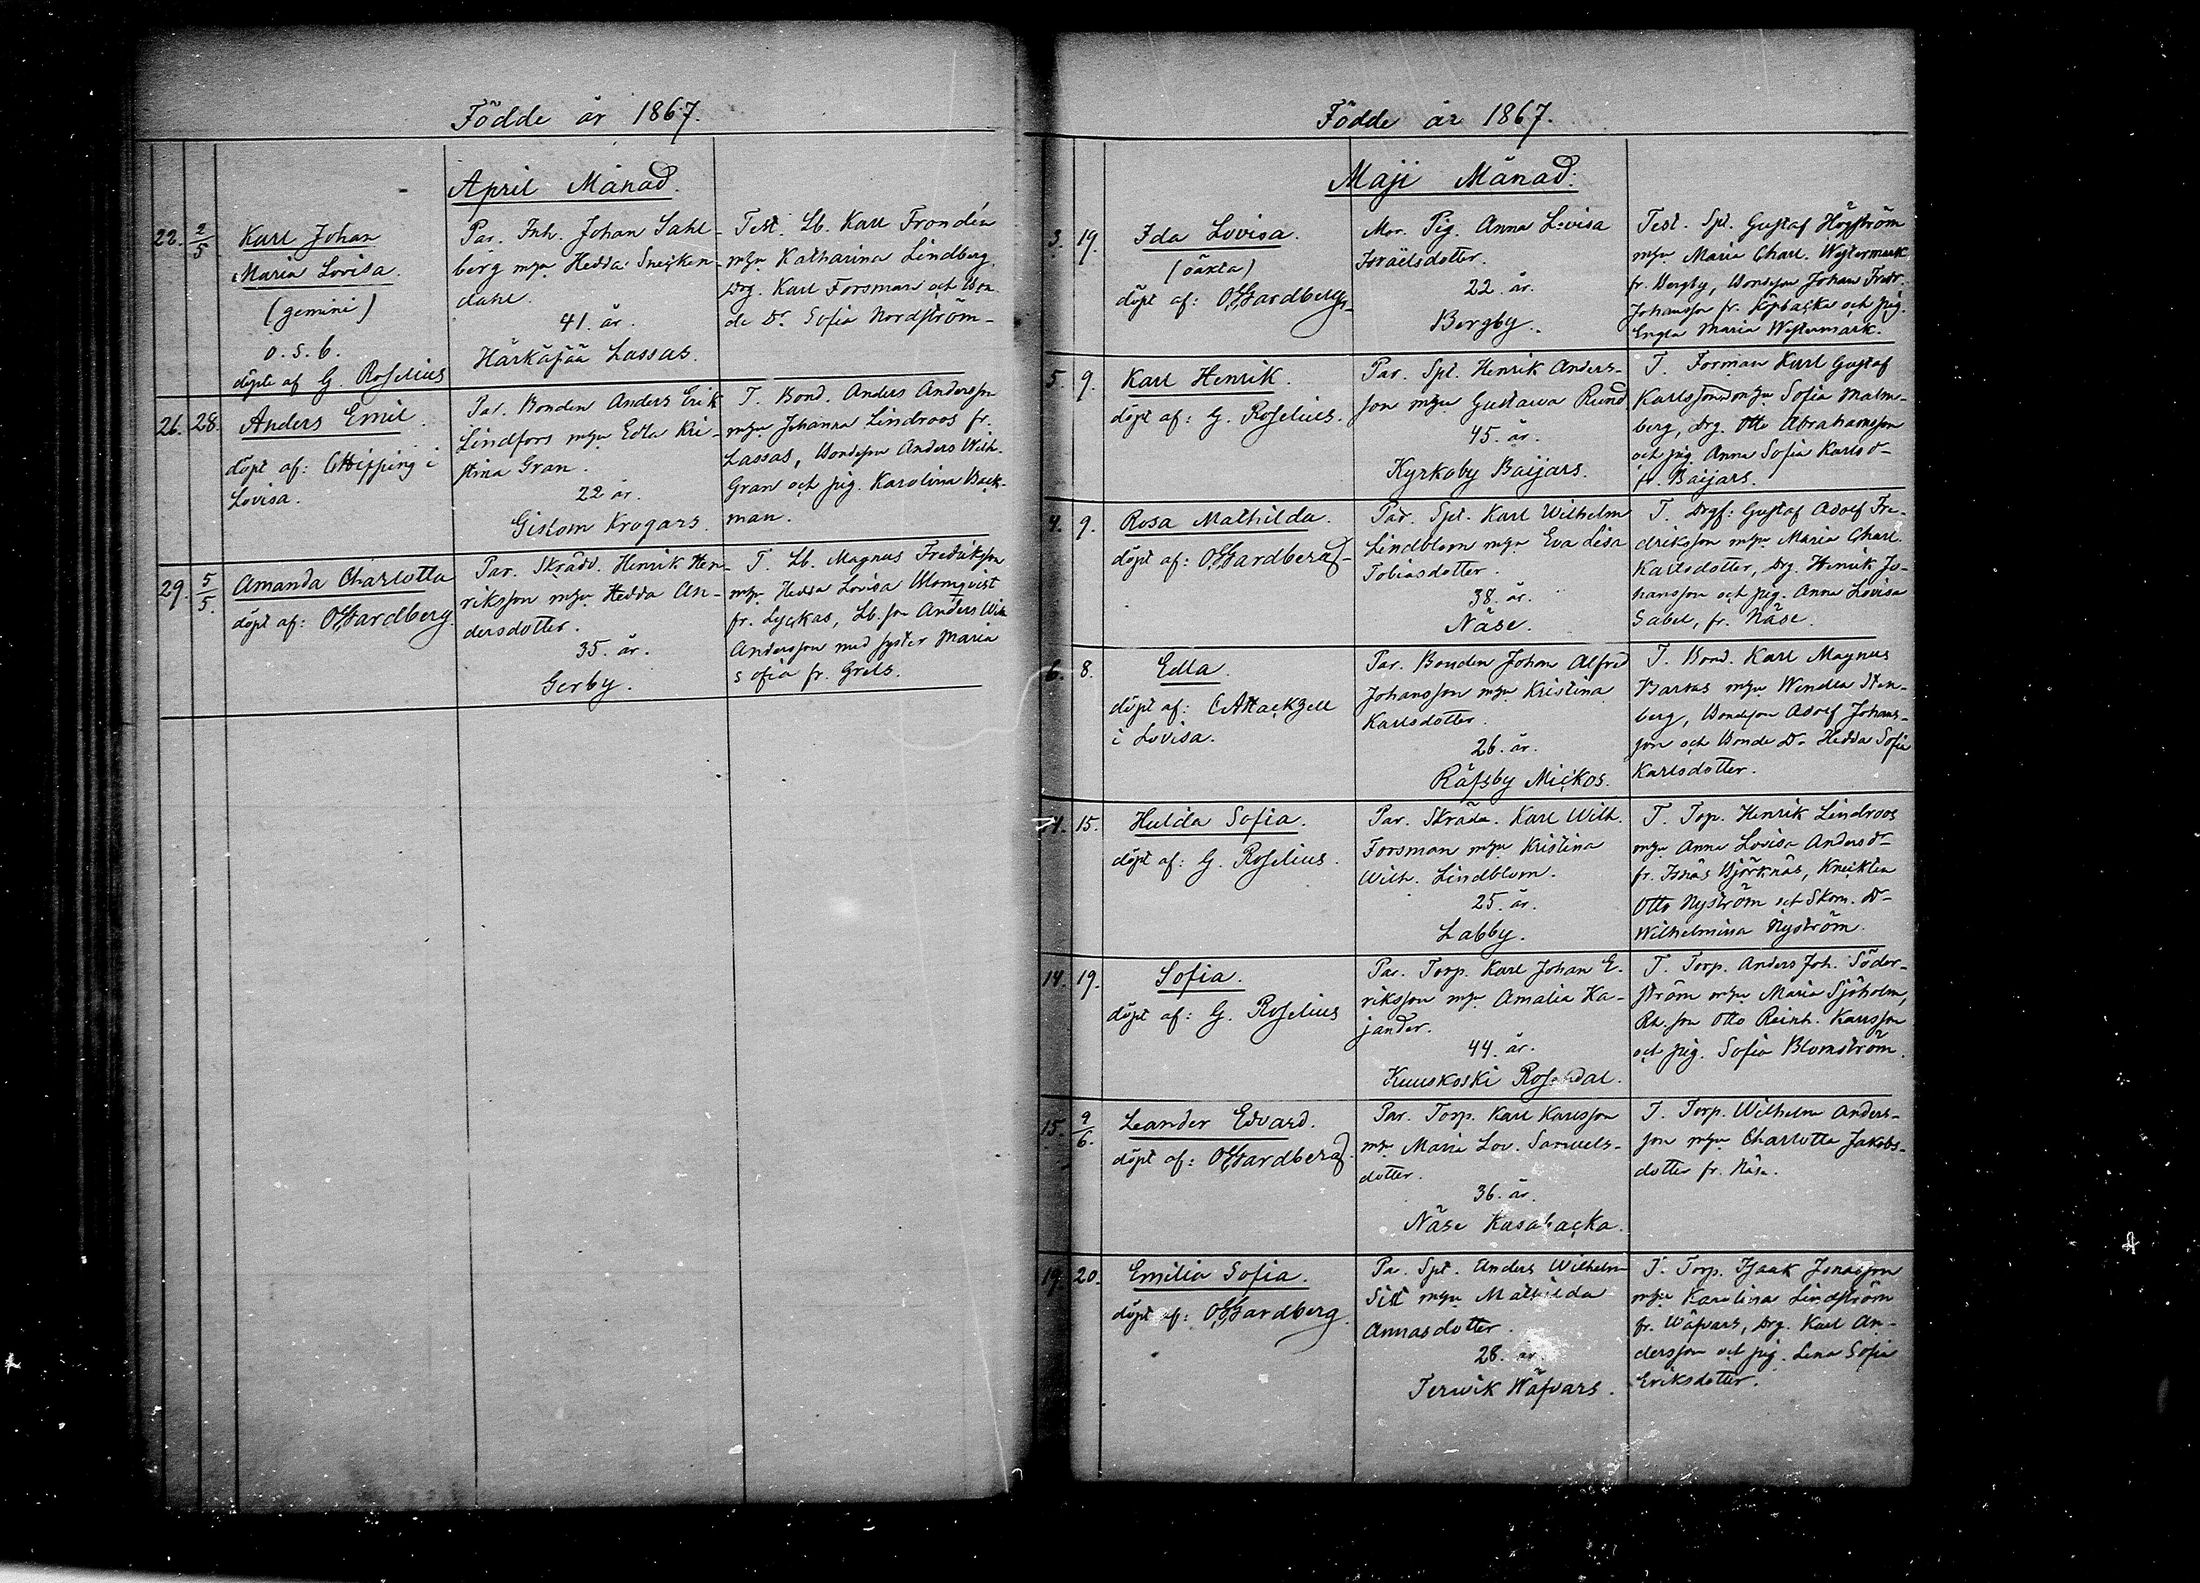 Födde år 1867.
April Månad.
22. 2/5
Karl Johan
Maria Lovisa.
(gemini)
o. s. b.
döpte af G. Roselius
Par. Inh. Johan Sahl-
berg mhu Hedda Snecken-
dahl.
41. år.
Härkäpää Lassas.
Test. Lb. Karl Frondén
mhu Katharina Lindberg.
Drg. Karl Forsman och Bon-
de Dr. Sofia Nordström-
26. 28.
Anders Emil.
döpt af: Hipping i
Lovisa.
Par. Bonden Anders Erik
Lindfors mhu Edla Kri-
stina Gran.
22 år.
Gislom Krogars.
T. Bond. Anders Andersson
mhu Johanna Lindroos fr.
Lassas, Bondeson Anders Wilh.
Gran och pig. Karolina Back-
man.
29. 5/5.
Amanda Charlotta
döpt af: Gardberg.
Par. Skrädd. Henrik Hen-
riksson mhu Hedda An-
dersdotter.
35. år.
Gerby.
T. Lb. Magnus Fredriksson
mhu Hedda Lovisa Blomqvist
fr. Lyckas, Lb. son Anders Wilh
Andersson med syster Maria
Sofia fr. Grels.
Födde år 1867.
Maji Månad.
3. 19.
Ida Lovisa.
(oäkta)
döpt af: Gardberg-
Mor. Pig. Anna Lovisa
Israelsdotter.
22. år.
Bergby.
Test. Spt. Gustaf Högström
mhu Maria Charl. Westermark
fr. Bergby, Bondeson Johan Fredr.
Johansson fr. Köpbacka och pig.
Engla Maria Westermark.
5. 9.
Karl Henrik.
döpt af: G. Roselius.
Par. Spt. Henrik Anders-
son mhu Gustava Rund
45. år.
Kyrkoby Baijars.
T. Forman Karl Gustaf
Karlsson mhu Sofia Malm-
berg, Drg. Otto Abrahamsson
och pig Anna Sofia Karlsd-
fr. Baijars.
4. 9.
Rosa Mathilda.
döpt af: Gardberg-
Par. Spt. Karl Wilhelm
Lindblom mhu Eva Lisa
Tobiasdotter.
38. år.
Näse.
T. Drgf: Gustaf Adolf Fre-
driksson mhu Maria Charl.
Karlsdotter, Drg. Henrik Jo-
hansson och pig. Anna Lovisa
Gabel, fr. Näse.
6. 8.
Edla.
döpt af: Hackzell
i Lovisa.
Par. Bonden Johan Alfred
Johansson mhu Kristina
Karlsdotter.
26. år.
Räfsby Mickos.
T. Bond. Karl Magnus
mhu Wendla Sten-
berg, Bondson Adolf Johans-
son och Bonde Dr Hedda Sofia
Karlsdotter.
11. 15.
Hulda Sofia.
döpt af: G. Roselius.
Par. Skrädd. Karl Wilh.
Forsman mhu Kristina
Wilh. Lindblom.
25. år.
Labby.
T. Torp. Henrik Lindroos
mhu Anna Lovisa Andersdr
fr. Isnäs Björknäs, Knekten
Otto Nyström och Skom. Dr
Wilhelmina Nyström.
14. 19.
Sofia.
döpt af: G. Roselius
Par. Torp. Karl Johan E-
riksson mhu Amalia Ka-
jander.
44. år.
Kuuskoski Rosendal.
T. Torp. Anders Joh. Söder-
ström mhu Maria Sjöholm,
son Otto Reinh. Karlsson
och pig. Sofia Blomström.
15. 9/6.
Leander Edvard.
döpt af: Gardberg.
Par. Torp. Karl Karlsson
mhu Maria Lov. Samuels-
dotter.
36. år.
Näse Kasabacka.
T. Torp. Wilhelm Anders-
son mhu Charlotta Jakobs-
dotter fr. Näse.
19. 20.
Emilia Sofia.
döpt af: Gardberg.
Par. Spt. Anders Wilhelm
Sill mhu Mathilda
Annasdotter.
28. år
Terwik Wäfvars.
T. Torp. Isaak Jonasson
mhu Karolina Lindström
fr. Wäfvars, Drg. Karl An-
dersson och pig. Lena Sofia
Eriksdotter.